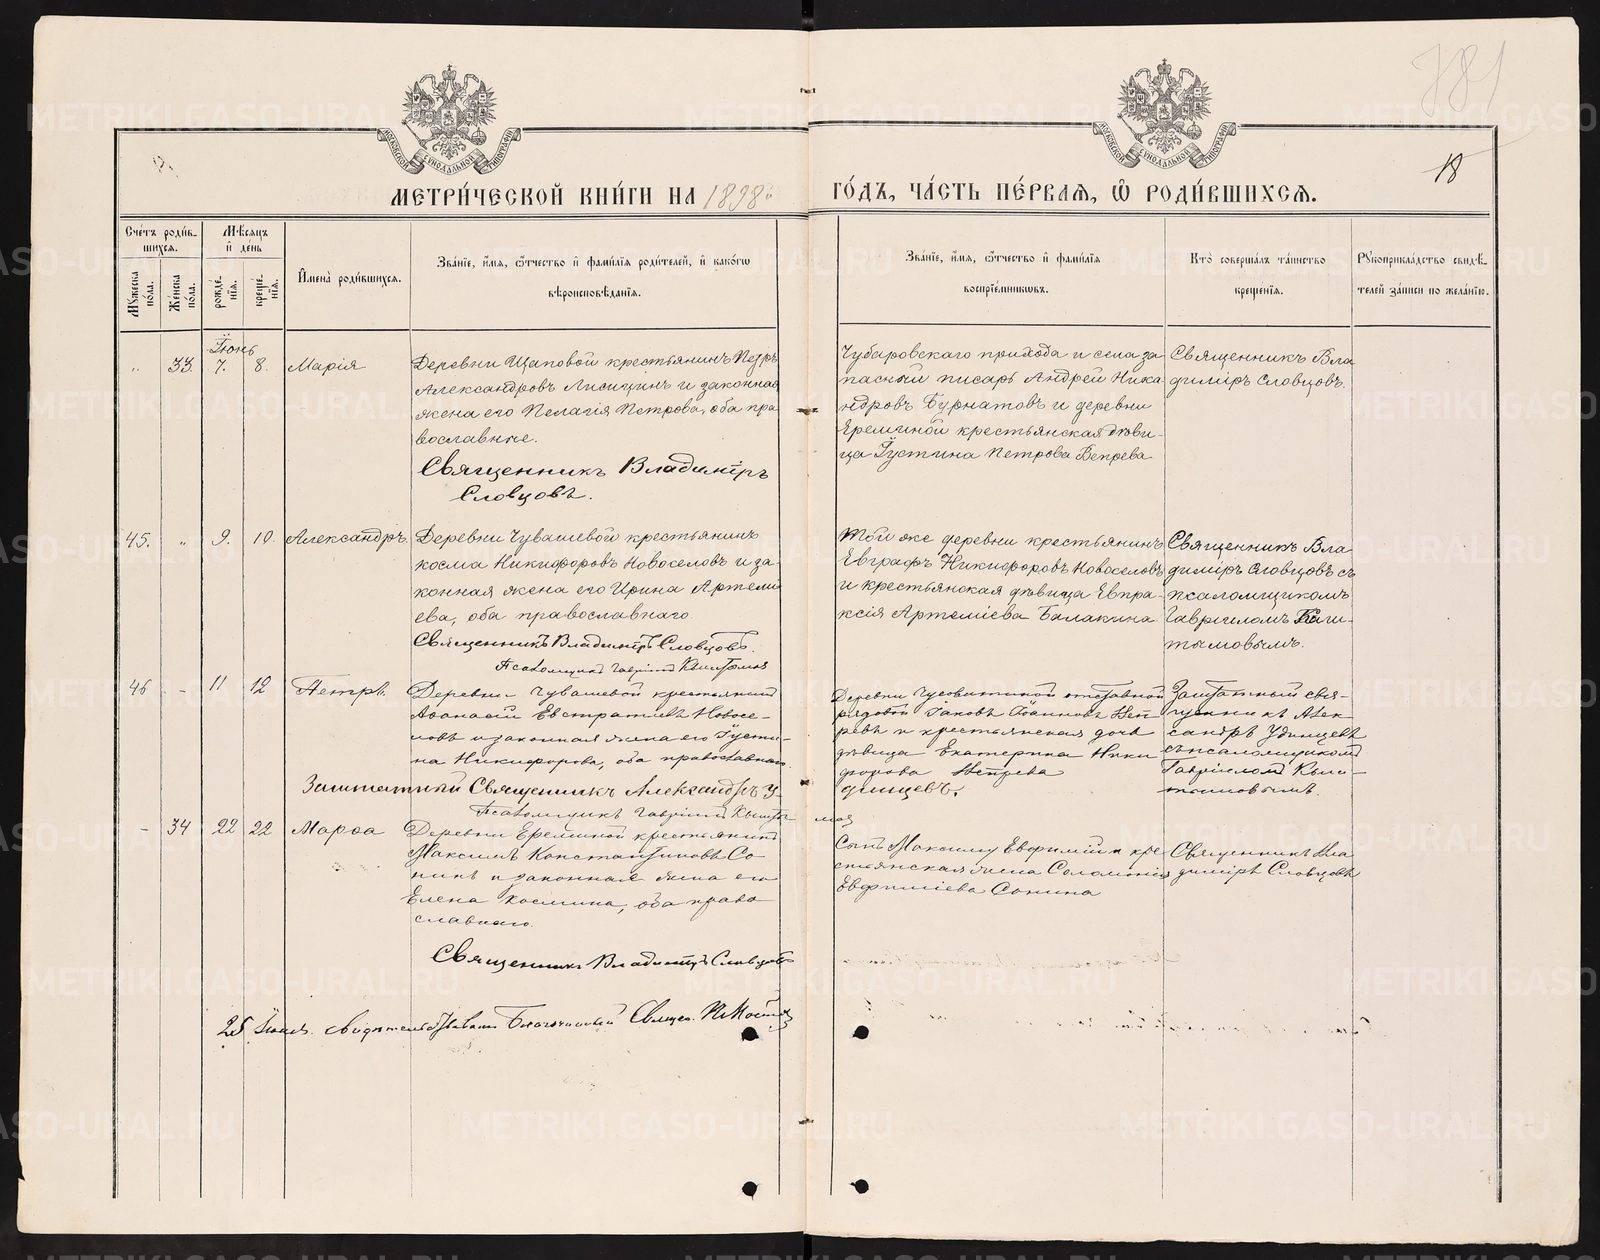 781
18
МОСКОВСКОЙ СѴНОДАЛЬНОЙ ТИПОГРАФІИ
МОСКОВСКОЙ СѴНОДАЛЬНОЙ ТИПОГРАФІИ
МЕТРИ́ЧЕСКОЙ КНИ́ГИ НА 1898й ГО́ДЪ, ЧА́СТЬ ПЕ́РВАѦ, Ѽ РОДИ́ВШИХСѦ.
Сче́тъ роди́в-
шихсѧ.
Мꙋжеска по́ла.
Же́нска по́ла.
Мѣ́сѧцъ
и҆ де́нь
рожде́-
нїѧ.
креще́-
нїѧ.
И҆мена̀ роди́вшихсѧ.
Зва́нїе, и҆́мѧ, ѻ҆́тчество и҆ фами́лїѧ роди́телей, и҆ како́гѡ
вѣроисповѣ́данїѧ.
Зва́нїе, и҆́мѧ, ѻ҆́тчество и҆ фами́лїѧ
воспрїе́мникѡвъ.
Кто̀ соверша́лъ та́инство
креще́нїѧ.
Рꙋкоприкла́дство свидѣ́-
телей за́писи по жела́нїю.
Іюнь
" 33. 7. 8. Марія
Деревни Щаповой крестьянинъ Петръ
Александровъ Лисицинъ и законная
жена его Пелагія Петрова, оба пра
вославные.
Священникъ Владиміръ
Словцовъ.
Чубаровскаго прихода и села за
пасный писарь Андрей Ника
ндровъ Бурматовъ и деревни
Ереминой крестьянская дѣви-
ца Іустина Петрова Вепрева
Священникъ Вла
диміръ Словцовъ.
45. " 9. 10. Александръ.
Деревни Чувашевой крестьянинъ
Косма Никифоровъ Новоселовъ и за
конная жена его Ирина Артеми
ева, оба православнаго.
Священникъ Владиміръ Словцовъ.
Псаломщикъ Гавріилъ Кыштымов
Той же деревни крестьянинъ
Евграфъ Никифоровъ Новоселовъ
и крестьянская дѣвица Евпра-
ксія Артеміева Балакина
Священникъ Вла
диміръ Словцовъ съ
псаломщикомъ
Гавріиломъ Кыш-
тымовымъ.
46 - 11 12 Петръ.
Деревни Чувашевой крестьянинъ
Аѳанасій Евстратіевъ Новосе-
ловъ и законная жена его Іусти-
на Никифорова, оба православнаго
Заштатный Священникъ Александръ У-
динцевъ.
Псаломщикъ Гавріилъ Кышты-
мов
Деревни Чусовитиной отставной
рядовой Іаковъ Іоанновъ Веп
ревъ и крестьянская дочь
дѣвица Екатерина Ники
форова Вепрева
Заштатный свя-
щенникъ Алек-
сандръ Удинцевъ
съ псаломщикомъ
Гавріиломъ Кыш-
тымовымъ.
- 34 22 22 Марѳа
Деревни Ереминой крестьянинъ
Максимъ Константиновъ Со-
нинъ и законная жена его
Елена Космина, оба право
славнаго.
Священникъ Владиміръ Словцовъ
Сынъ Максиму Евфимій и кре
стьянская жена Соломонія
Евфиміева Сонина
Священникъ Вла
диміръ Словцовъ
25 Іюля. Свидѣтельствовалъ Благочинный Священ.
METRIKI.GASO-URAL.RU